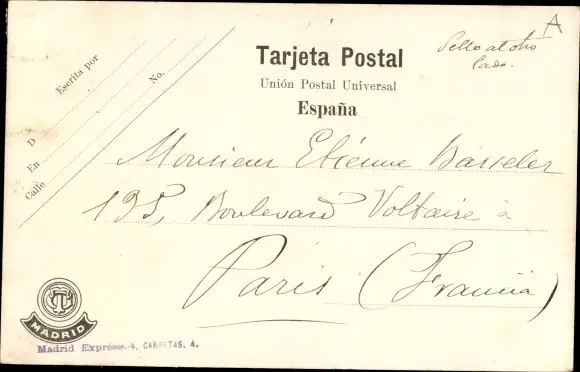 A
Sello al otro
lado.
Tarjeta Postal
Unión Postal Universal
España
Escrita por
D
En
No.
Calle
Monsieur Etienne Basseler
195, Boulevard Voltaire à
Paris (Francia)
MADRID
Madrid Express.-4, CARRETAS, 4.